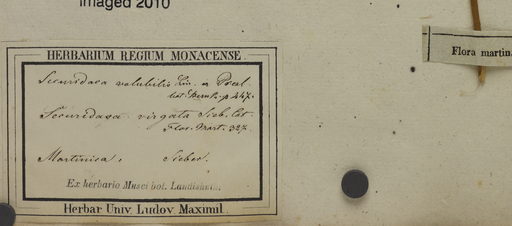 Imaged 2010
HERBARIUM REGIUM MONACENSE
Securidaca volubilis Lin. ex Presl
bot. Bemk. p 447.
Securidaca virgata Sieb. Cat.
Flor. Mart. 327.
Martinica. Sieber.
Ex herbario Musei bot. Landishut.
Herbar. Univ. Ludov. Maximil.
Flora martin.